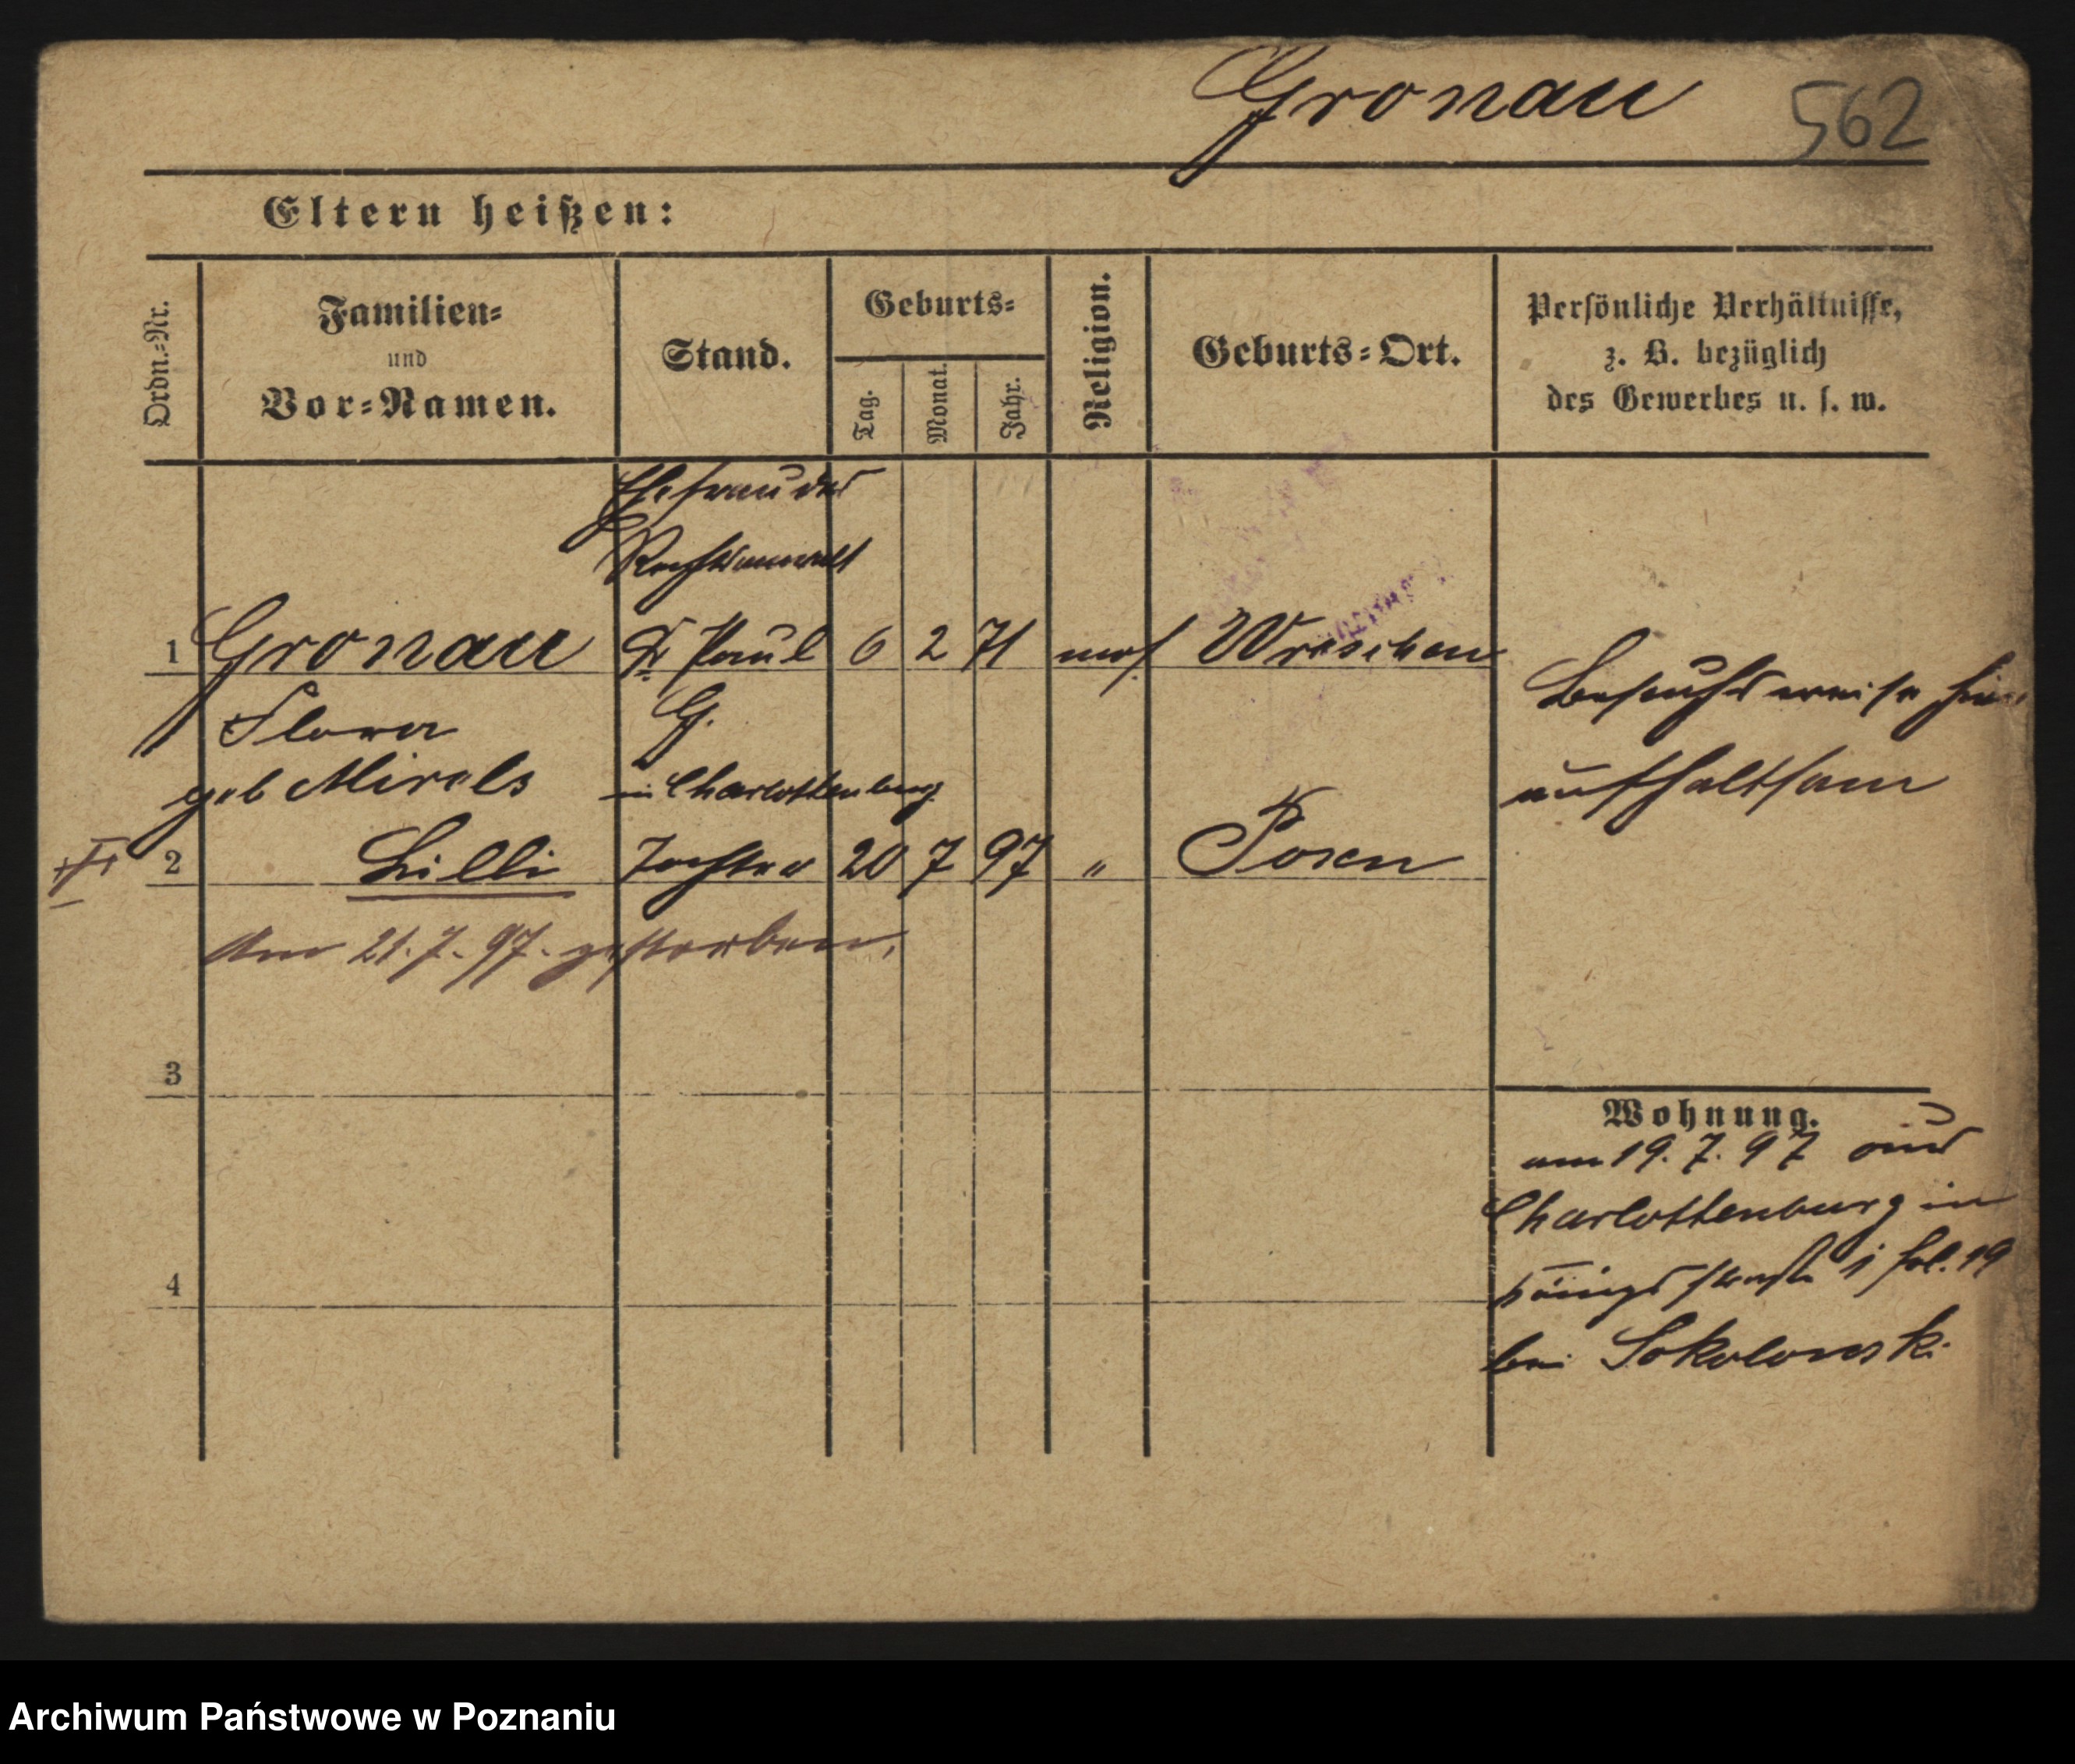 Gronau 562
Eltern heißen:
Ordn.-Nr.
Familien-
und
Vor-Namen.
Stand.
Geburts-
Tag.
Monat.
Jahr.
Religion.
Geburts-Ort.
Persönliche Verhältnisse,
z. B. bezüglich
des Gewerbes u. s. w.
Ehefrau des
Rechtsanwalt
1 Gronau Dr Paul 6 2 71 mos. Wreschen
Flora G.
geb Mirels in Charlottenburg
Besuchsweise hier
aufhaltsam
2 Lilli Tochter 20 7 97 " Posen
Am 21.7.97. gestorben.
3
4
Wohnung.
am 19. 7. 97 aus
Charlottenburg in
Königsstraße fol. 19
bei Sokolowski